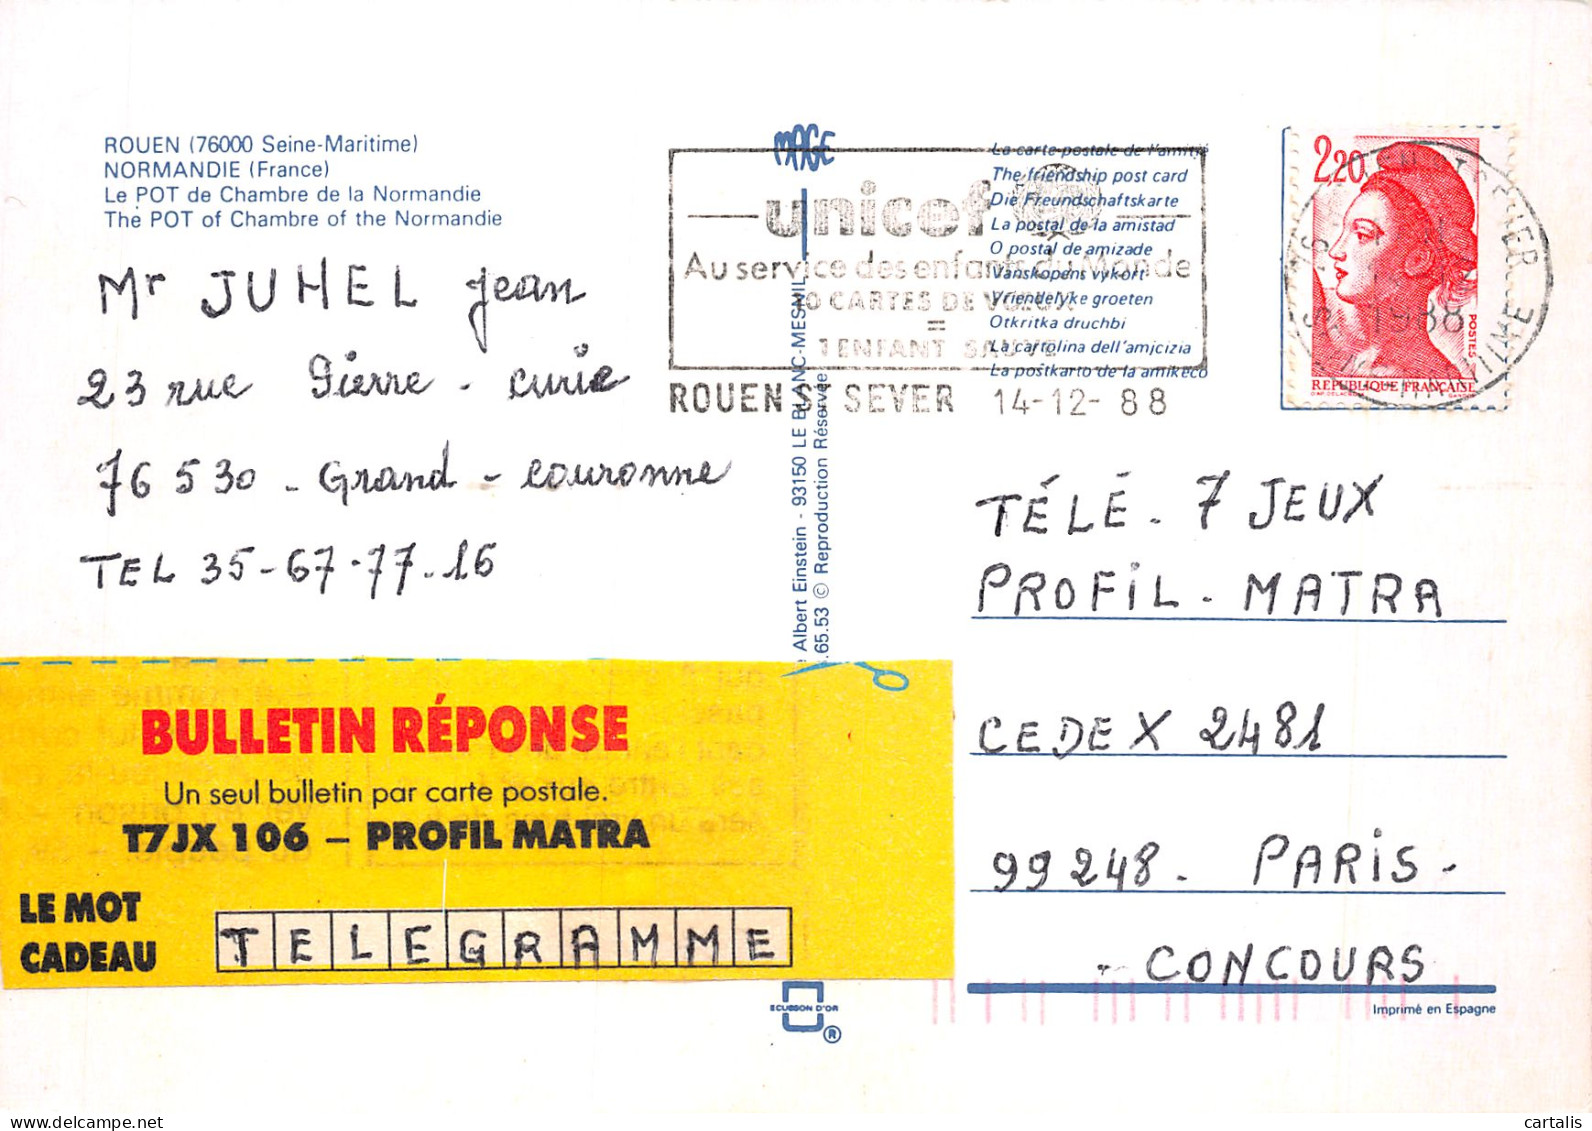 ROUEN (76000 Seine-Maritime)
NORMANDIE (France)
Le POT de Chambre de la Normandie
The POT of Chambre of the Normandie
Mr JUHEL Jean
23 rue Pierre - curie
76 530 - Grand - couronne
TEL 35-67-77-16
BULLETIN RÉPONSE
Un seul bulletin par carte postale.
T7JX 106 – PROFIL MATRA
LE MOT
CADEAU
TELEGRAMME
MAGE
unicef
Au service des enfants du Monde
10 CARTES DE VOEUX
=
1 ENFANT
ROUEN ST SEVER 14-12-88
La carte postale de l'amitié
The friendship post card
Die Freundschaftskarte
La postal de la amistad
O postal de amizade
Vänskapens vykort
Vriendelyke groeten
Otkritka druchbi
La cartolina dell'amicizia
La poŝtkarto de la amikeco
Albert Einstein - 93150 LE BLANC-MESNIL
.65.53 © Reproduction Réservée
2,20
POSTES
REPUBLIQUE FRANÇAISE
1988
TÉLÉ - 7 JEUX
PROFIL - MATRA
CEDEX 2481
99248 - PARIS -
- CONCOURS
Imprimé en Espagne
ECUSSON D'OR
®
cartalis